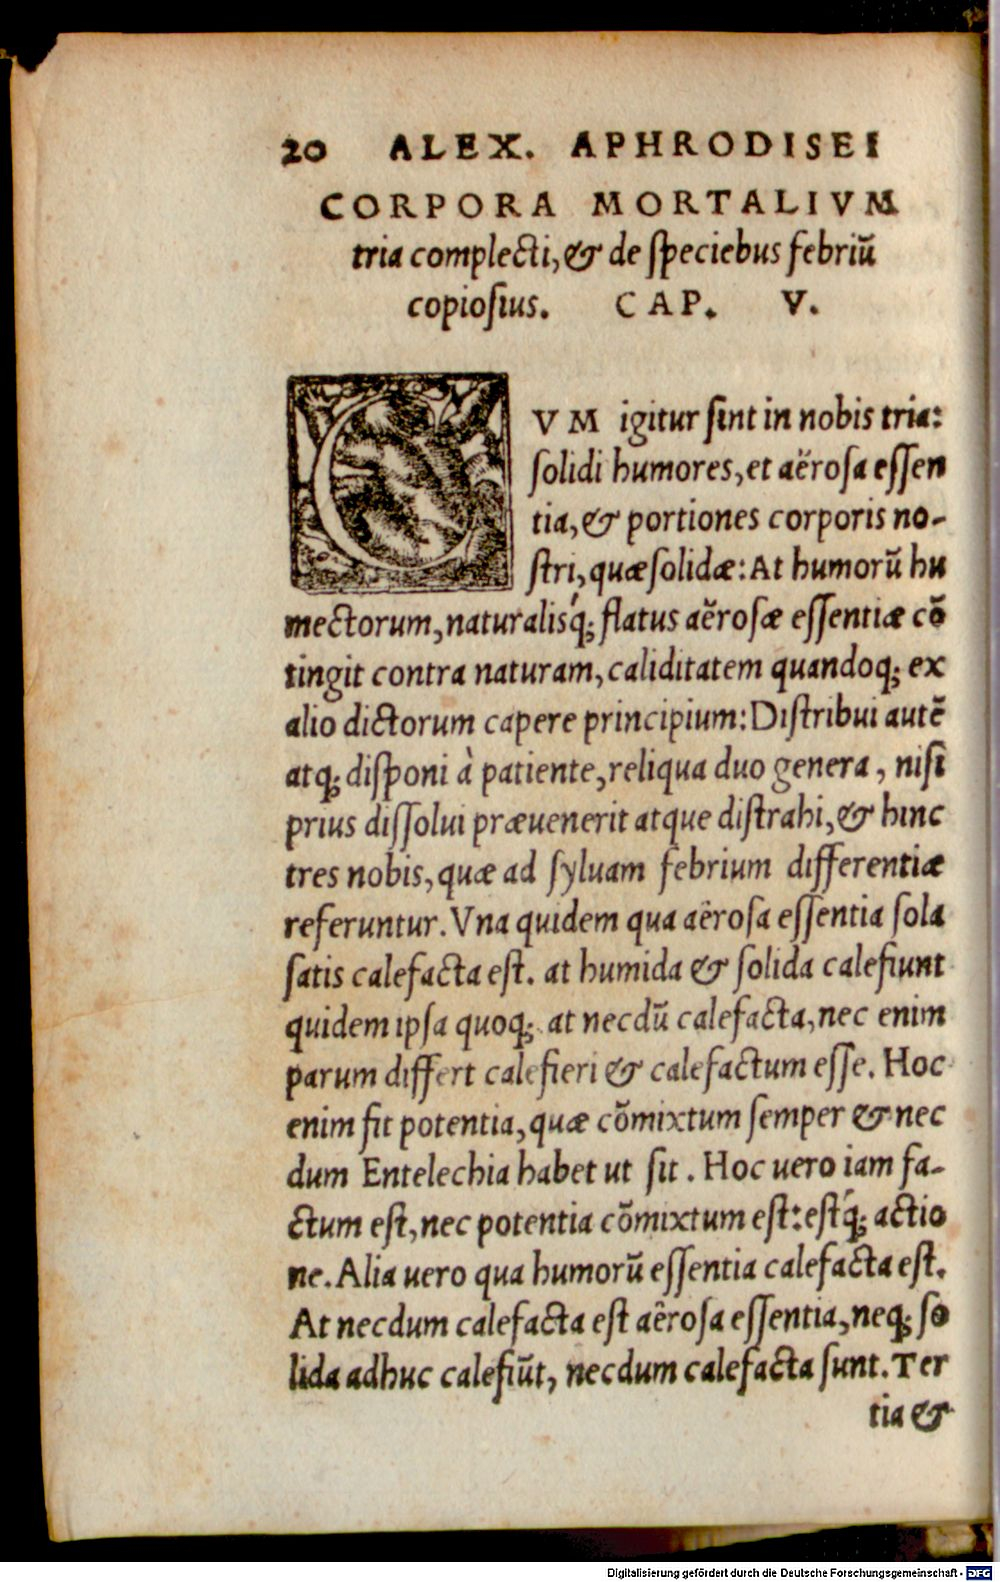 20 ALEX. APHRODISEI
CORPORA MORTALIVM
tria complecti, & de ſpeciebus febriū
copioſius. CAP. V.
CVM igitur ſint in nobis tria:
ſolidi humores, et aëroſa eſſen
tia, & portiones corporis no-
ſtri, quæ ſolidæ: At humorū hu
mectorum, naturalisq́; flatus aëroſæ eſſentiæ cō
tingit contra naturam, caliditatem quandoq; ex
alio dictorum capere principium: Diſtribui autē
atq; diſponi à patiente, reliqua duo genera, niſi
prius diſſolui præuenerit atque diſtrahi, & hinc
tres nobis, quæ ad ſyluam febrium differentiæ
referuntur. Vna quidem qua aëroſa eſſentia ſola
ſatis calefacta eſt. at humida & ſolida calefiunt
quidem ipſa quoq; at necdū calefacta, nec enim
parum differt calefieri & calefactum eſſe. Hoc
enim fit potentia, quæ cōmixtum ſemper & nec
dum Entelechia habet ut ſit. Hoc uero iam fa-
ctum eſt, nec potentia cōmixtum eſt: eſtq́; actio
ne. Alia uero qua humorū eſſentia calefacta eſt.
At necdum calefacta eſt aëroſa eſſentia, neq; ſo
lida adhuc calefiūt, necdum calefacta ſunt. Ter
tia &
Digitalisierung gefördert durch die Deutsche Forschungsgemeinschaft - DFG